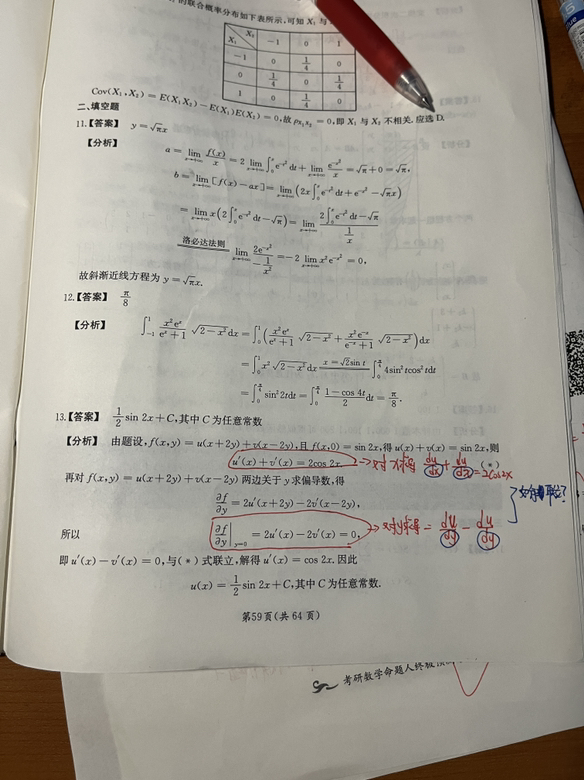 的联合概率分布如下表所示,可知 X₁ 与
X₂ -1 0 1
X₁
-1 0 1/4 0
0 1/4 0 1/4
1 0 1/4 0
Cov(X₁,X₂) = E(X₁X₂)-E(X₁)E(X₂) = 0,故 ρX₁X₂ = 0,即 X₁ 与 X₂ 不相关. 应选 D.
二、填空题
11.【答案】 y=√πx
【分析】 a = lim_{x→+∞} f(x)/x = 2 lim_{x→+∞} ∫₀ˣ e^{-t²} dt + lim_{x→+∞} e^{-x²}/x = √π+0 = √π,
b = lim_{x→+∞} [f(x)-ax] = lim_{x→+∞} (2x∫₀ˣ e^{-t²} dt + e^{-x²} - √πx)
= lim_{x→+∞} x(2∫₀ˣ e^{-t²} dt - √π) = lim_{x→+∞} (2∫₀ˣ e^{-t²} dt - √π)/(1/x)
洛必达法则 lim_{x→+∞} 2e^{-x²}/(-1/x²) = -2 lim_{x→+∞} x²e^{-x²} = 0,
故斜渐近线方程为 y = √πx.
12.【答案】 π/8
【分析】 ∫₋₁¹ x²eˣ/(eˣ+1) √(2-x²) dx = ∫₀¹ (x²eˣ/(eˣ+1) √(2-x²) + x²e⁻ˣ/(e⁻ˣ+1) √(2-x²)) dx
= ∫₀¹ x²√(2-x²) dx x=√2sin t ∫₀^{π/4} 4sin²tcos²tdt
= ∫₀^{π/4} sin²2tdt = ∫₀^{π/4} (1-cos 4t)/2 dt = π/8.
13.【答案】 1/2 sin 2x+C,其中 C 为任意常数
【分析】 由题设,f(x,y) = u(x+2y)+v(x-2y),且 f(x,0) = sin 2x,得 u(x)+v(x) = sin 2x,则
u′(x)+v′(x) = 2cos 2x. (*) → 对x求得 du/dx + dv/dx = 2cos2x
再对 f(x,y) = u(x+2y)+v(x-2y) 两边关于 y 求偏导数,得
∂f/∂y = 2u′(x+2y)-2v′(x-2y),
所以 ∂f/∂y|_{y=0} = 2u′(x)-2v′(x) = 0, → 对y求得 = du/dy - dv/dy
即 u′(x)-v′(x) = 0,与(*)式联立,解得 u′(x) = cos 2x. 因此
u(x) = 1/2 sin 2x+C,其中 C 为任意常数.
第59页(共 64 页)
考研数学命题人终极预测